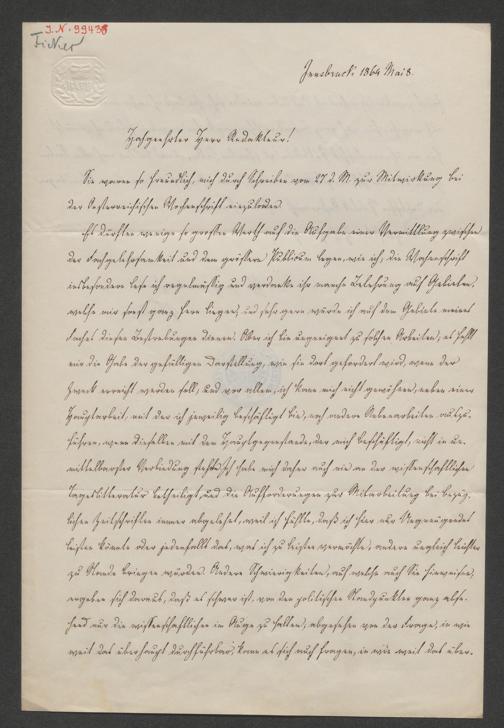 J.N. 99438
Ficker
Innsbruck 1864 Mai 8.
Hochgeehrter Herr Redakteur!
Sie waren so freundlich, mich durch Schreiben vom 27 d. M. zur Mitwirkung bei
der Oesterreichischen Wochenschrift einzuladen
Es dürften wenige so grossen Werth auf die Aufgabe einer Vermittlung zwischen
der Fachgelehrsamkeit und dem grössern Publikum legen, wie ich die Wochenschrift
insbesondere lese ich regelmässig und verdanke ihr manche Belehrung auf Gebieten,
welche mir sonst ganz ferne liegen; und sehr gern würde ich auf dem Gebiete meines
Faches diesen Bestrebungen dienen. Aber ich bin ungeeignet zu solchen Arbeiten, es fehlt
mir die Gabe der gefälligen Darstellung, wie sie dort gefordert wird, wenn der
Zweck erreicht werden soll, und vor allem, ich kann mich nicht gewöhnen, neben einer
Hauptarbeit, mit der ich jeweilig beschäftigt bin, noch andere Nebenarbeiten auszu-
führen, wenn dieselben mit dem Hauptgegenstande, der mich beschäftigt, nicht in un-
mittelbarster Verbindung stehen. Ich habe mich daher auch nie an der wissenschaftlichen
Tageslitteratur betheiligt, und die Aufforderungen zur Mitarbeitung bei bezüg-
lichen Zeitschriften immer abgelehnt, weil ich fühlte, dass ich hier nur Ungenügendes
leisten könnte oder jedenfalls das, was ich zu leisten vermöchte, andere ungleich leichter
zu Stande bringen würden. Andere Schwierigkeiten, auf welche auch Sie hinweisen,
ergeben sich daraus, dass es schwer ist, von den politischen Standpunkten ganz abse-
hend nur die wissenschaftlichen im Auge zu halten; abgesehen von der Frage, in wie
weit das überhaupt durchführbar, kann es sich auch fragen, in wie weit das über-